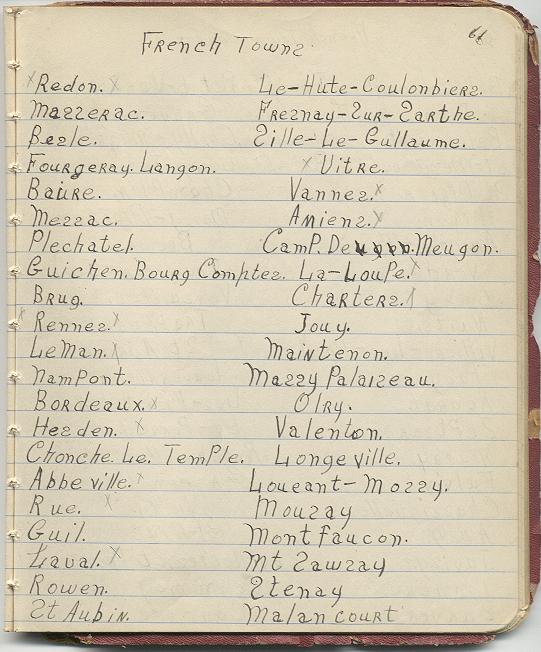 French Towns
Redon.
Masserac.
Besle.
Fourgeray. Langon.
Baure.
Messac.
Plechatel.
Guichen. Bourg Comptes.
Brug.
Rennes.
LeMan.
Nampont.
Bordeaux.
Hesden.
Chonche. Le. Temple.
Abbeville.
Rue.
Guil.
Laval.
Rowen.
St Aubin.
Le-Hute-Coulonbiers.
Fresnay-Sur-Sarthe.
Sille-Le-Gullaume.
Vitre.
Vannes.
Amiens.
Camp. De Meugon.
La-Loupe.
Charters.
Jouy.
Maintenon.
Massy Palaiseau.
Olry.
Valenton.
Longeville.
Loueant-Mossy.
Mouzay
Montfaucon.
Mt Sawsay
Stenay
Malancourt